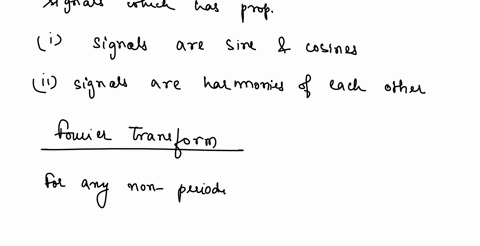 signals which has prop.
(i) signals are sine & cosines
(ii) signals are harmonies of each other
Fourier Transform
for any non- periodc